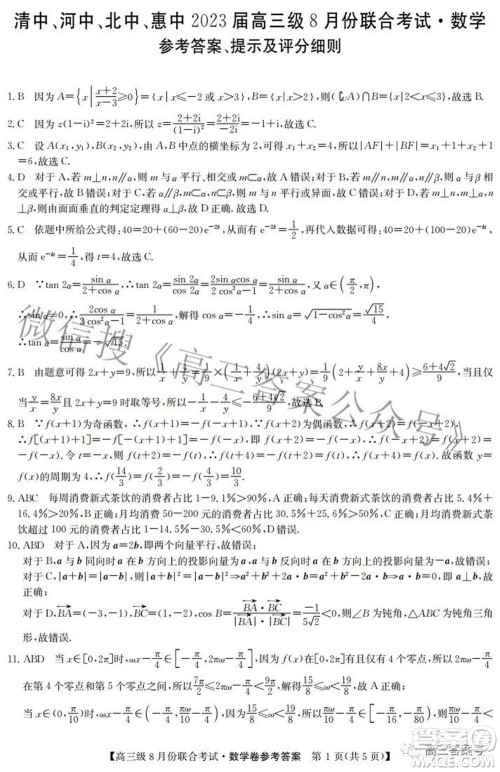 清中、河中、北中、惠中 2023 届高三级 8 月份联合考试·数学
参考答案、提示及评分细则
1. B 因为 A={x|(x+2)/(x-3)≥0}={x|x≤-2 或 x>3}, B={x|x>2}, 则(∁UA)∩B={x|2<x≤3}, 故选 B.
2. C 因为 z(1-i)²=2+2i, 所以 z=(2+2i)/(1-i)²=(2+2i)/(-2i)=-1+i, 故选 C.
3. C 设 A(x₁,y₁), B(x₂,y₂), 由 A, B 中点的横坐标为 2, 可得 x₁+x₂=4, 所以|AF|+|BF|=x₁+1+x₂+1
=6, 故选 C.
4. D 对于 A, 若 m⊥n, n∥α, 则 m 与 α 平行、相交或 m⊂α, 故 A 错误; 对于 B, 若 m∥β, β⊥α, 则 α 与 β 相
交或平行, 故 B 错误; 对于 C, 若 α∥β, m⊂α, n⊂β, 则 m 与 n 平行或异面, 故 C 错误; 对于 D,
α⊥β, 故 D 正确. 故选 D.
5. C 依题中所给公式得: 40=20+(60-20)e^{-2k}, 从而有 e^{-2k}=1/2, 再代人数据可得: 40=20+(100-20)e^{-kt},
从而 e^{-kt}=1/4, 得 t=4, 故选 C.
6. D ∵tan 2α=sin α/(2+cos α), ∴tan 2α=sin 2α/cos 2α=2sin αcos α/(2cos²α-1)=sin α/(2+cos α), 又 α∈(π/2,π),
∴sin α≠0, ∴2cos α/(2cos²α-1)=1/(2+cos α), 解得 cos α=-1/4, ∴sin α=√(1-cos²α)=√15/4,
∴tan α=sin α/cos α=-√15.
7. B 由题意可得 2x+y=9, 所以
当 y/x=8x/y 且 2x+y=9 时取等号, 所以 故选 B.
8. B ∵f(x+1)为奇函数, ∴f(x+1)=-f(-x+1), ∵f(x+2)为偶函数, ∴f(x+2)=f(-x+2).
∴f[(x+1)+1]=-f[-(x+1)+1]=-f(-x), 即 f(x+2)=-f(-x), ∴f(-x+2)=f(x+2)=-f(-x).
∴f(x+2)=-f(x), f(x+4)=-f(x+2)=f(x), 故函数 y=
f(x)的周期为 4, ∴f(14/3)=f(2/3)=-f(-4/3)=10/3.
9. ABC 每周消费新式茶饮的消费者占比 1-9.1%>90%, A 正确; 每天消费新式茶饮的消费者占比 5.4%+
16.4%>20%, B 正确; 月均消费 50-200 元的消费者占比 30.5%+25.6%>50%, C 正确; 月均消费新式茶
饮超过 100 元的消费者占比 1-14.5%-30.5%<60%, D 错误.
10. ABD 对于 A, 因为 a=2b, 即两个向量平行, 故错误;
对于 B, a 与 b 同向时 a 在 b 方向上的投影向量为 a, a 与 b 反向时 a 在 b 方向上的投影向量为-a, 故错误;
对于 C, |a+b|=|a-b|, 则|a+b|²=|a-b|²⇒a²+b²+2a·b=a²+b²-2a·b⇒a·b=0, 即 a⊥b, 故
正确;
对于 D, BA=(-3,-1), BC=(1,-2), cos B=BA·BC/(|BA|·|BC|)=-1/(5√2)<0, 则∠B 为钝角, △ABC 为钝角三角
形, 故错误.
11. ABD 当 x∈[0,2π]时, ωx-π/4∈[-π/4,2πω-π/4], 因为 f(x)在[0,2π]有且仅有 4 个零点, 所以 2πω-π/4
在第 4 个零点和第 5 个零点之间, 所以
《高三答案公众号》
微信搜
高三答案号
【高三级 8 月份联合考试·数学卷参考答案 第 1 页(共 5 页)】